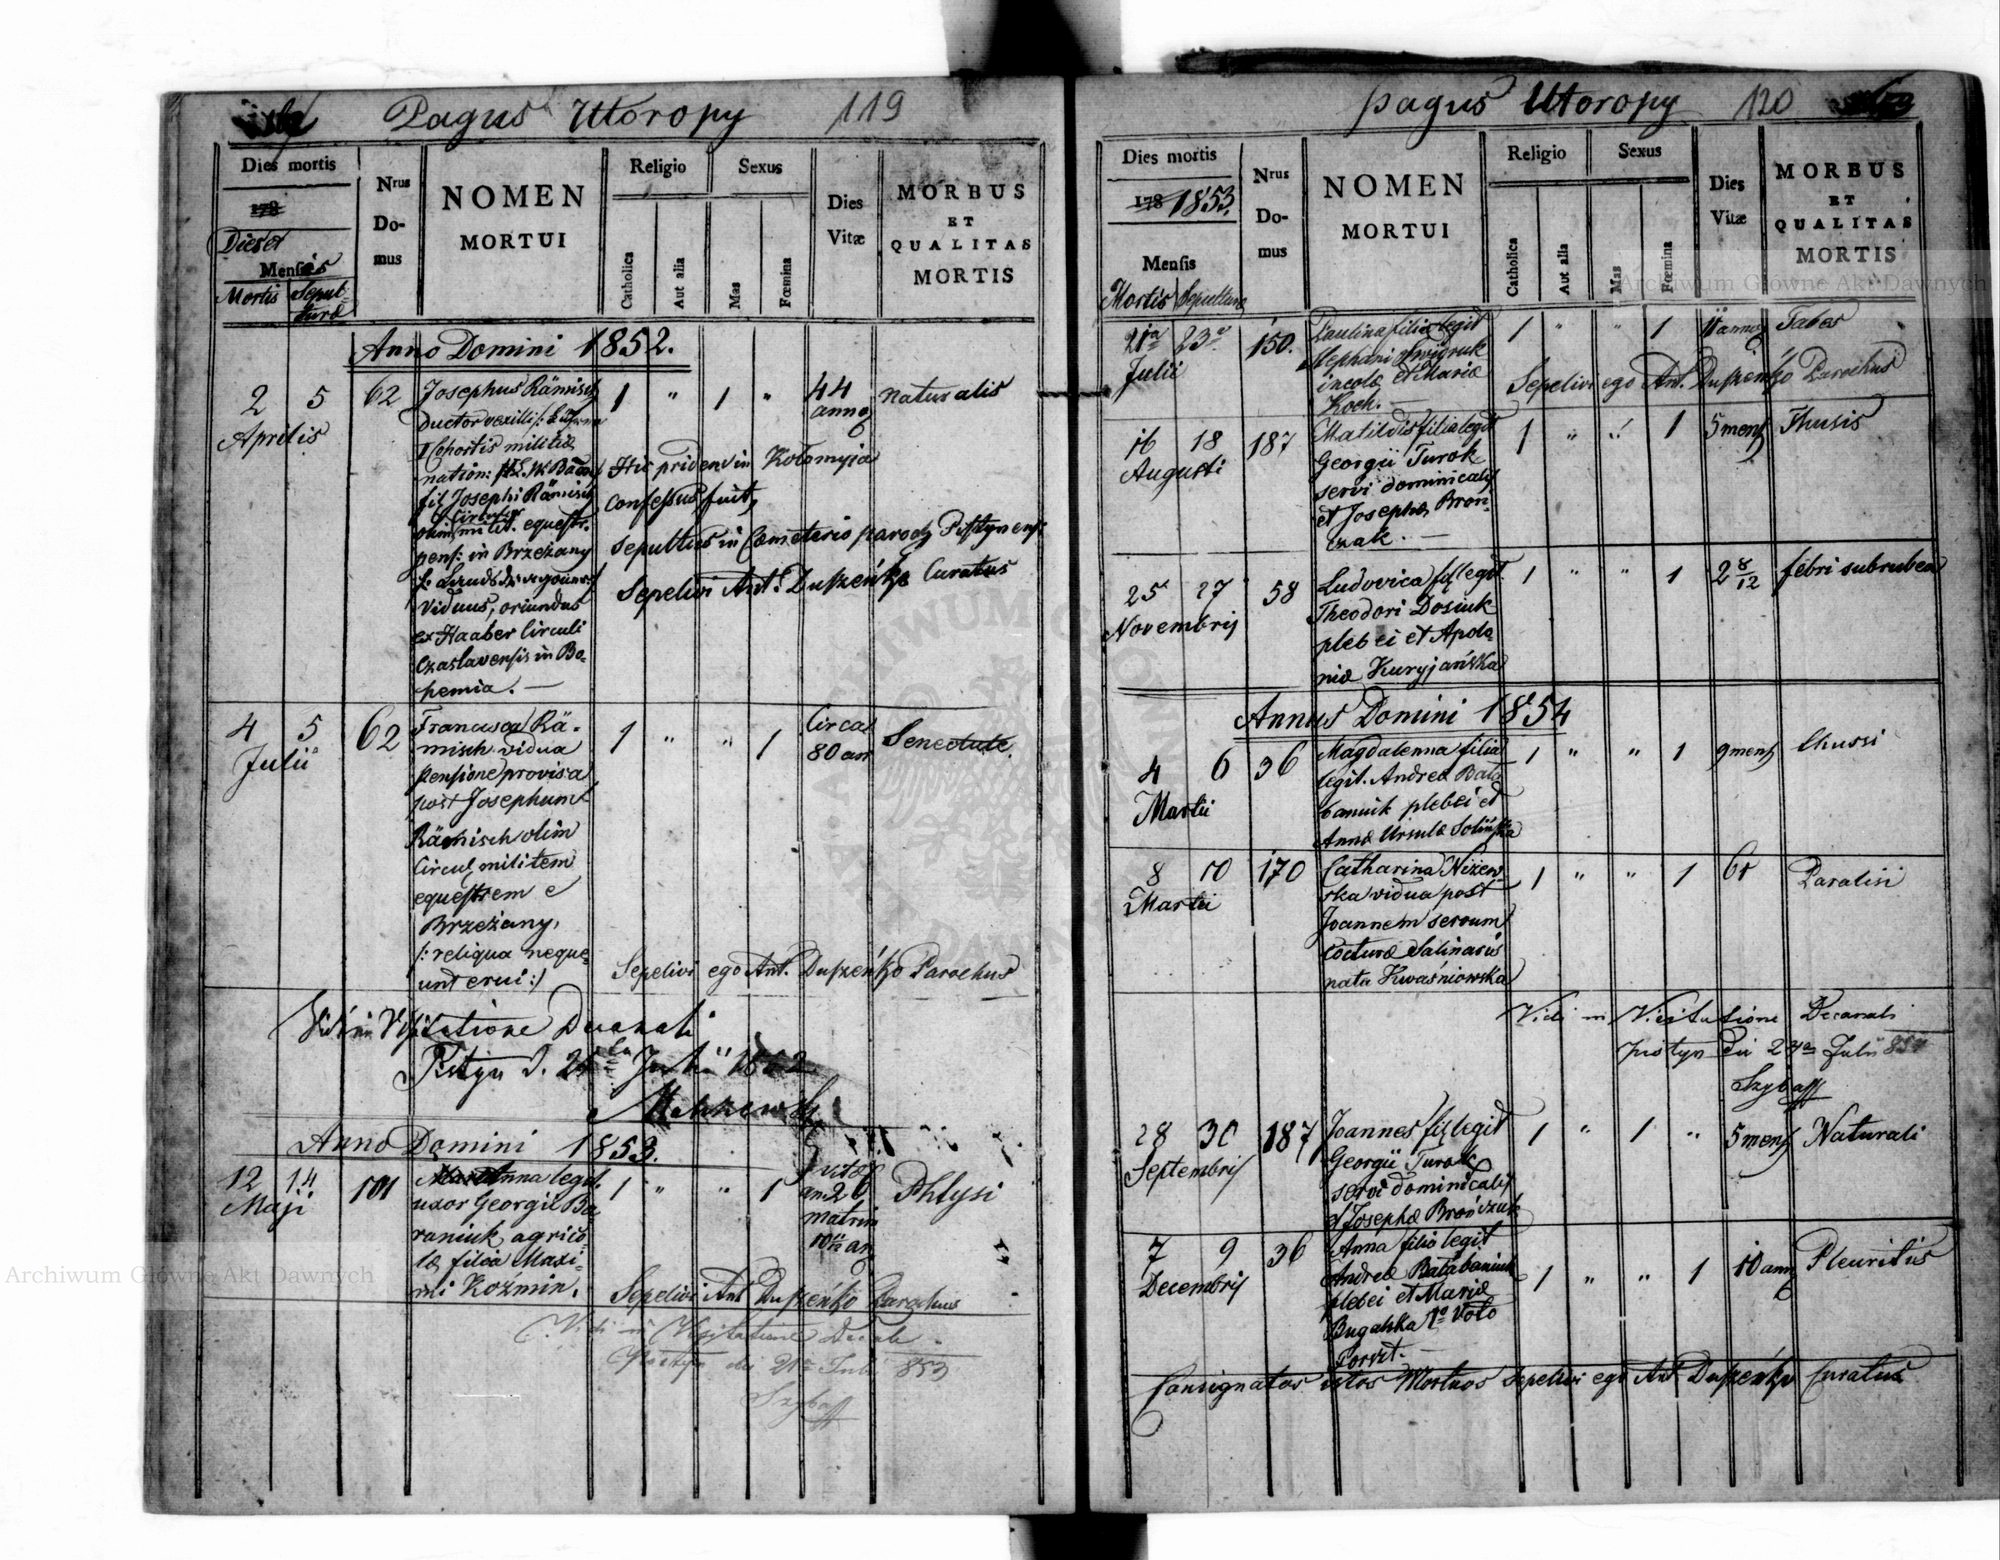 Pagus Utoropy 119
Dies mortis
Nrus Domus
NOMEN MORTUI
Religio
Sexus
Dies Vitæ
MORBUS ET QUALITAS MORTIS
178
Dies et
Mensis
Mortis Sepulturæ
Catholica
Aut alia
Mas
Fœmina
Anno Domini 1852.
2 5 62 Josephus Rämisch 1 " 1 " 44 naturalis
Aprilis ductor vexilli anno
Cohortis militiæ
nation:
fil Josephi Rämisch Hic pridem in Kołomyja
confessus fuit,
olim milit. equestr.
pens: in Brzeżany sepultus in Cœmeterio paroch Pistynensi
Sepelivi Ant. Duszeńko Curatus
viduus, oriundus
ex Haaber Circuli
Czaslavensis in Bo-
hemia. —
4 5 62 Francisca Rä- 1 " " 1 Circa Senectute.
Julii misch vidua 80 an
pensione provisa
post Josephum
Rämisch olim
Circul militem
equestrem e
Brzeżany,
/: reliqua neque-
unt erui :/ Sepelivi ego Ant. Duszeńko Parochus
Vidi in Visitatione Decanali
Pistyn
Anno Domini 1853.
12 14 101 Anna legit. 1 " " 1 vitæ Phtysi
Maji uxor Georgii Ba- an 26
raniuk agrico- matrim
læ filia Maxi- an
mi Koźmin. Sepelivi Ant Duszeńko Parochus
Vidi in Visitatione
Pistyn die 21 Juli 853
pagus Utoropy 120
Dies mortis
Nrus Domus
NOMEN MORTUI
Religio
Sexus
Dies Vitæ
MORBUS ET QUALITAS MORTIS
178 1853.
Mensis
Mortis Sepulturæ
Catholica
Aut alia
Mas
Fœmina
21a 23a 150. Paulina filia legit 1 " " 1 11 anno Tabes
Julii Stephani
incolæ et Mariæ Sepelivi ego Ant. Duszeńko Parochus
Koch. —
16 18 187 Matildis filia legit 1 " " 1 5 mens Thusis
Augusti Georgii Turok
servi dominicalis
et Josephæ Bron-
czak. —
25 27 58 Ludovica fil legit 1 " " 1 2 8/12 febri subrubea
Novembris Theodori Dosiuk
plebei et Apolo-
niæ Kuryjańska
Annus Domini 1854
4 6 36 Magdalenna filia 1 " " 1 9 mens thussi
Martii legit. Andreæ Bata-
baniuk plebei et
Annæ Ursulæ
8 10 170 Catharina Niżew- 1 " " 1 Paralisi
Martii ska vidua post
Joannem servum
Cocturæ Salinaris
nata Kwaśniowska
Vidi in Visitatione Decanali
Pistyn die Julii 854
28 30 187 Joannes fil legit 1 " 1 " 5 mens Naturali
Septembris Georgii Turok
servi dominicalis
et Josephæ Brończak
7 9 36 Anna filia legit 1 " " 1 10 ann Pleuritis
Decembris Andreæ Batabaniuk
plebei et Mariæ
1o voto
Consignatos istos Mortuos sepelivi ego Ant Duszeńko Curatus
Archiwum Główne Akt Dawnych
Archiwum Główne Akt Dawnych